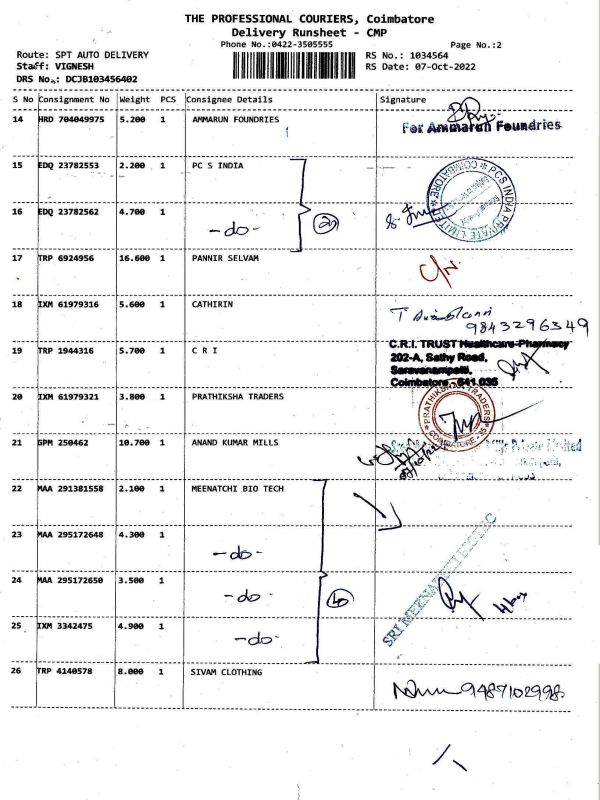 THE PROFESSIONAL COURIERS, Coimbatore
Delivery Runsheet - CMP
Phone No.:0422-3505555 Page No.:2
Route: SPT AUTO DELIVERY RS No.: 1034564
Staff: VIGNESH RS Date: 07-Oct-2022
DRS No.: DCJB103456402
S No Consignment No Weight PCS Consignee Details Signature
14 HRD 704049975 5.200 1 AMMARUN FOUNDRIES
For Ammarun Foundries
15 EDQ 23782553 2.200 1 PC S INDIA
PCS INDIA PRIVATE LIMITED COIMBATORE
16 EDQ 23782562 4.700 1 -do- 2
17 TRP 6924956 16.600 1 PANNIR SELVAM
18 IXM 61979316 5.600 1 CATHIRIN
9843296349
19 TRP 1944316 5.700 1 C R I
C.R.I. TRUST Healthcare-Pharmacy
202-A, Sathy Road,
Saravanampatti,
Coimbatore - 641 035
20 IXM 61979321 3.800 1 PRATHIKSHA TRADERS
PRATHIKSHA TRADERS COIMBATORE - 35
21 GPM 250462 10.700 1 ANAND KUMAR MILLS
Mills Private Limited
22 MAA 291381558 2.100 1 MEENATCHI BIO TECH
23 MAA 295172648 4.300 1 -do-
24 MAA 295172650 3.500 1 -do-
25 IXM 3342475 4.900 1 -do-
SRI MEENATCHI BIO TEC
26 TRP 4140578 8.000 1 SIVAM CLOTHING
9487102998